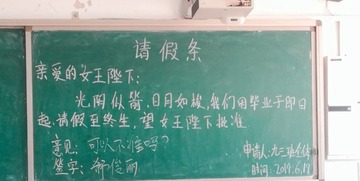 请假条
亲爱的女王陛下:
光阴似箭,日月如梭,我们因毕业于即日
起请假至终生,望女王陛下批准
意见:可以不准吗?
签字:俊丽
申请人:九三班全体
时间:2019.6.19